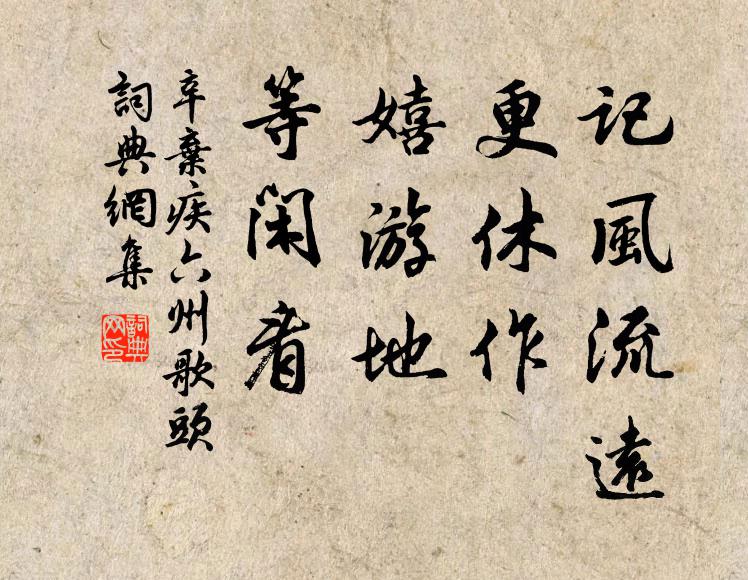 記風流遠
更休作
嬉游地
等閑看
辛棄疾六州歌頭
詞典網集
詞典網印